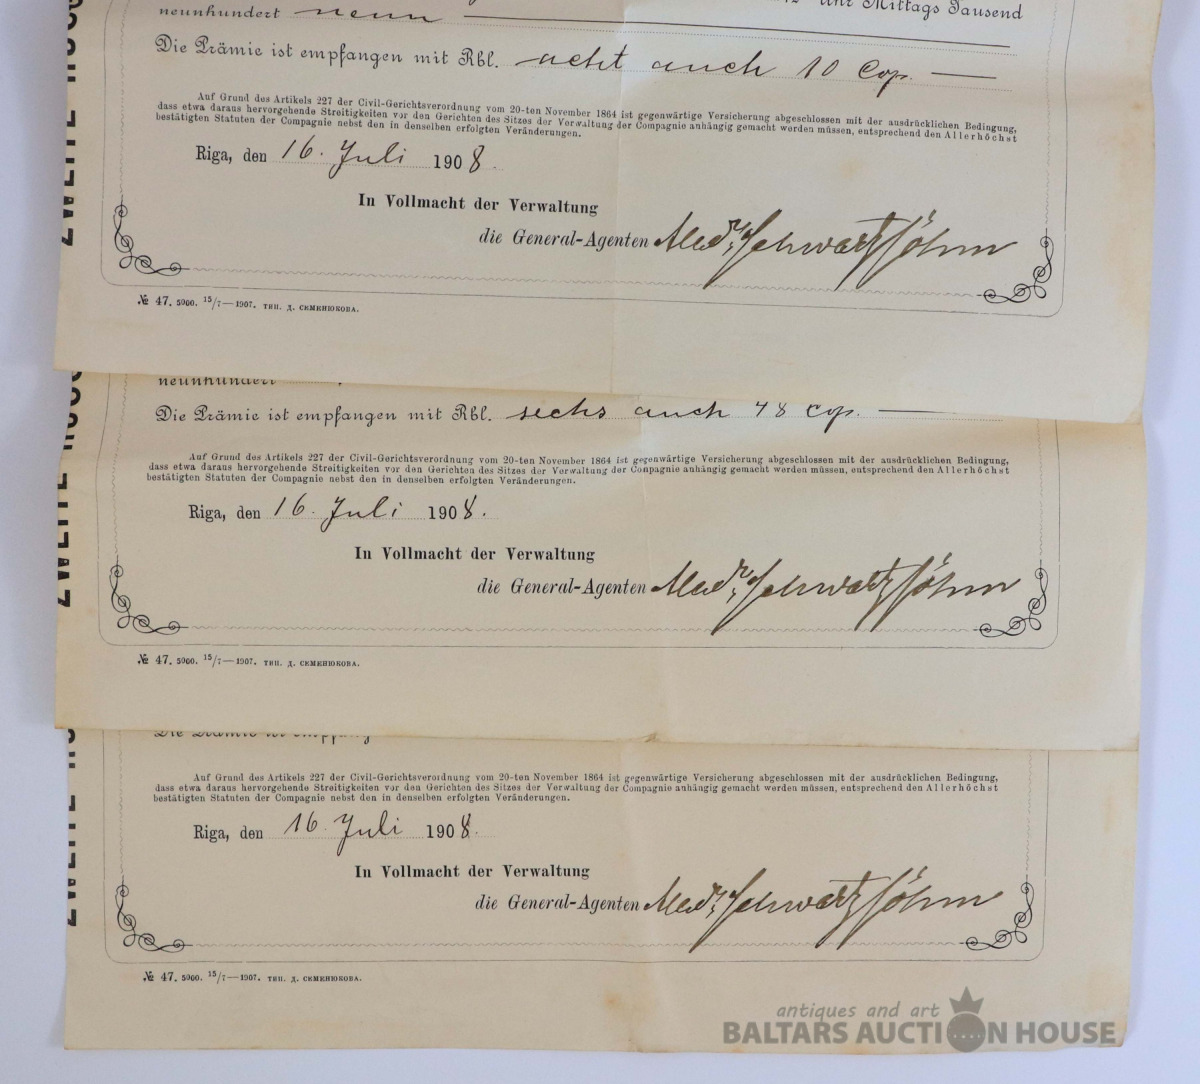 Uhr Mittags Tausend
neunhundert neun
Die Prämie ist empfangen mit Rbl. acht auch 10 Cop.
Auf Grund des Artikels 227 der Civil-Gerichtsverordnung vom 20-ten November 1864 ist gegenwärtige Versicherung abgeschlossen mit der ausdrücklichen Bedingung,
dass etwa daraus hervorgehende Streitigkeiten vor den Gerichten des Sitzes der Verwaltung der Compagnie anhängig gemacht werden müssen, entsprechend den Allerhöchst
bestätigten Statuten der Compagnie nebst den in denselben erfolgten Veränderungen.
Riga, den 16. Juli 1908.
In Vollmacht der Verwaltung
die General-Agenten
№ 47. 5000. 15/7—1907. тип. Д. Семенюкова.
neunhundert
Die Prämie ist empfangen mit Rbl. sechs auch 48 Cop.
Auf Grund des Artikels 227 der Civil-Gerichtsverordnung vom 20-ten November 1864 ist gegenwärtige Versicherung abgeschlossen mit der ausdrücklichen Bedingung,
dass etwa daraus hervorgehende Streitigkeiten vor den Gerichten des Sitzes der Verwaltung der Compagnie anhängig gemacht werden müssen, entsprechend den Allerhöchst
bestätigten Statuten der Compagnie nebst den in denselben erfolgten Veränderungen.
Riga, den 16. Juli 1908.
In Vollmacht der Verwaltung
die General-Agenten
№ 47. 5000. 15/7—1907. тип. Д. Семенюкова.
Die Prämie ist
Auf Grund des Artikels 227 der Civil-Gerichtsverordnung vom 20-ten November 1864 ist gegenwärtige Versicherung abgeschlossen mit der ausdrücklichen Bedingung,
dass etwa daraus hervorgehende Streitigkeiten vor den Gerichten des Sitzes der Verwaltung der Compagnie anhängig gemacht werden müssen, entsprechend den Allerhöchst
bestätigten Statuten der Compagnie nebst den in denselben erfolgten Veränderungen.
Riga, den 16. Juli 1908.
In Vollmacht der Verwaltung
die General-Agenten
№ 47. 5000. 15/7—1907. тип. Д. Семенюкова.
ZWEITE
ZWEITE
ZWEITE
antiques and art
BALTARS AUCTION HOUSE